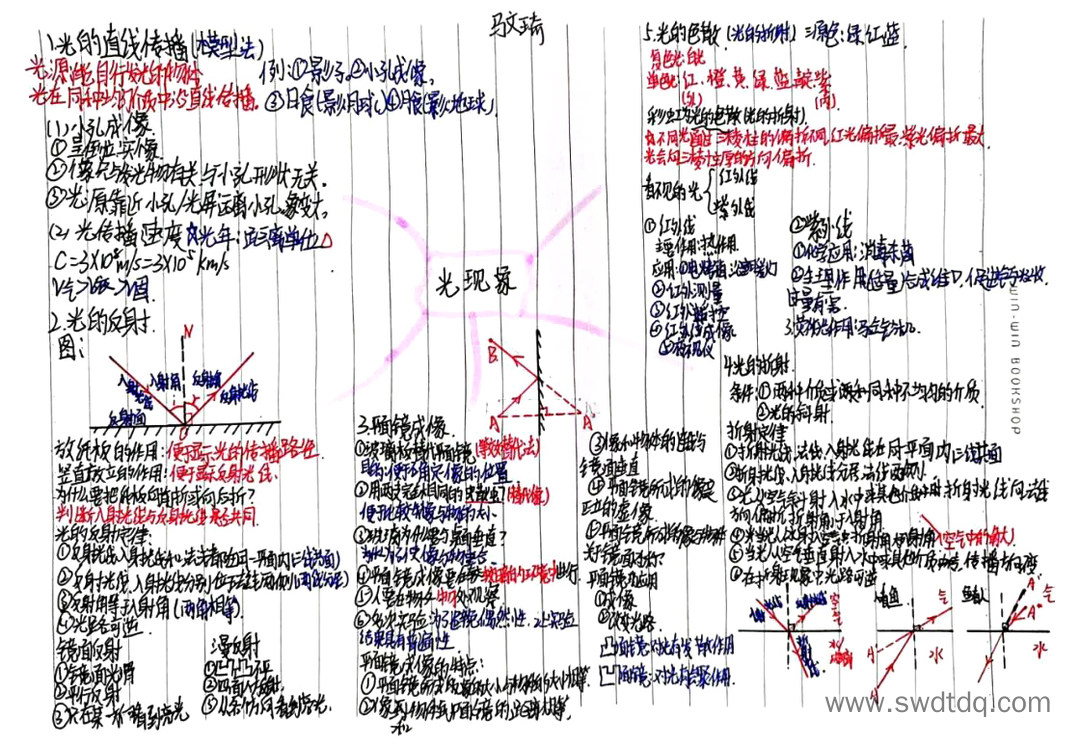 马文琦
1.光的直线传播(模型法)
光源:能自行发光的物体
光在同种均匀介质中沿直线传播。
例:①影子。②小孔成像。
③日食(影月球)④月食(影地球)
(1)小孔成像
①呈倒立实像
②像只与发光物有关,与小孔形状无关。
③光源靠近小孔/光屏远离小孔,象变大。
(2)光传播速度 光年:距离单位△
C=3×10⁸m/s=3×10⁵km/s
V气>V液>V固.
2.光的反射.
图:
N
入射光线
入射角
反射角
反射光线
反射面
O
放纸板的作用:便于显示光的传播路径
竖直放立的作用:便于显示反射光线.
为什么要把纸板向前折或向后折?
判断入射光线与反射光线是否共面
光的反射定律:
①反射光线入射光线和法线都在同一平面内(三线共面)
②反射光线、入射光线分别位于法线两侧(两线分居)
③反射角等于入射角(两角相等).
④光路可逆
镜面反射
①镜面光滑
②平行反射
③只在某一方向看到亮光
漫反射
①凹凸不平
②四面八方反射.
③从各个方向看到亮光.
光现象
B
A
A'
3.平面镜成像.
①玻璃板替代平面镜(等效替代法)
目的:便于确定像的位置
②用两支完全相同的
便于比较像与物体的大小
③玻璃板为什么要与桌面垂直?
④平面镜成像是在较黑暗的环境中进行.
⑤人要在物体一侧观察
⑥多次实验:为了避免偶然性.让实验
结果具有普遍性.
平面镜成像的特点:
①平面镜所成像的大小与物体的大小相等.
②像和物体到平面镜的距离相等,
③像和物体的连线与
镜面垂直
④平面镜所成的像是
正立的虚像.
⑤平面镜所成的像与物体
关于镜面对称
平面镜的应用
①成像
②改变光路
凸面镜:对光有发散作用
凹面镜:对光有会聚作用.
5.光的色散(光的折射) 三原色:绿.红.蓝.
复色光:白光
单色光:红、橙、黄、绿、蓝、靛、紫
彩虹为光的色散(光的折射).
不同光通过三棱柱的偏折不同,红光偏折最小,紫光偏折最大
光会向三棱柱厚的方向偏折.
看不见的光
红外线
紫外线
①红外线
主要作用:热作用.
②红外测量
③红外遥控
④红外线成像
⑤夜视仪
②紫外线
①化学应用:消毒杀菌
②生理作用(适量)合成维D,促进钙吸收.
适量有害.
3.荧光作用:验钞机.
WIN-WIN BOOKSHOP
4.光的折射.
条件:①两种介质或两种同种不均匀的介质
②光的斜射.
折射定律
①折射光线、法线、入射光线在同平面内(三线共面
②折射光线、入射光线分居法线两侧.
③光从空气斜射入水中或其他介质中时折射光线向法线
方向偏折,折射角小于入射角
(空气中的角大)
⑤当光从空气垂直射入水中或其他介质中时,传播方向不变
⑥在折射现象中光路可逆
空气
水
气
水
A'
A
A'
A
气
水
www.swdtdq.com